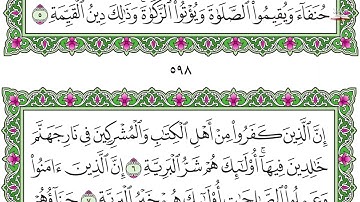 حُنَفَآءَ وَيُقِيمُوا۟ ٱلصَّلَوٰةَ وَيُؤْتُوا۟ ٱلزَّكَوٰةَ وَذَٰلِكَ دِينُ ٱلْقَيِّمَةِ ٥
٥٩٨
إِنَّ ٱلَّذِينَ كَفَرُوا۟ مِنْ أَهْلِ ٱلْكِتَٰبِ وَٱلْمُشْرِكِينَ فِى نَارِ جَهَنَّمَ
خَٰلِدِينَ فِيهَآ أُو۟لَٰٓئِكَ هُمْ شَرُّ ٱلْبَرِيَّةِ ٦ إِنَّ ٱلَّذِينَ ءَامَنُوا۟
وَعَمِلُوا۟ ٱلصَّٰلِحَٰتِ أُو۟لَٰٓئِكَ هُمْ خَيْرُ ٱلْبَرِيَّةِ ٧ جَزَآؤُهُمْ